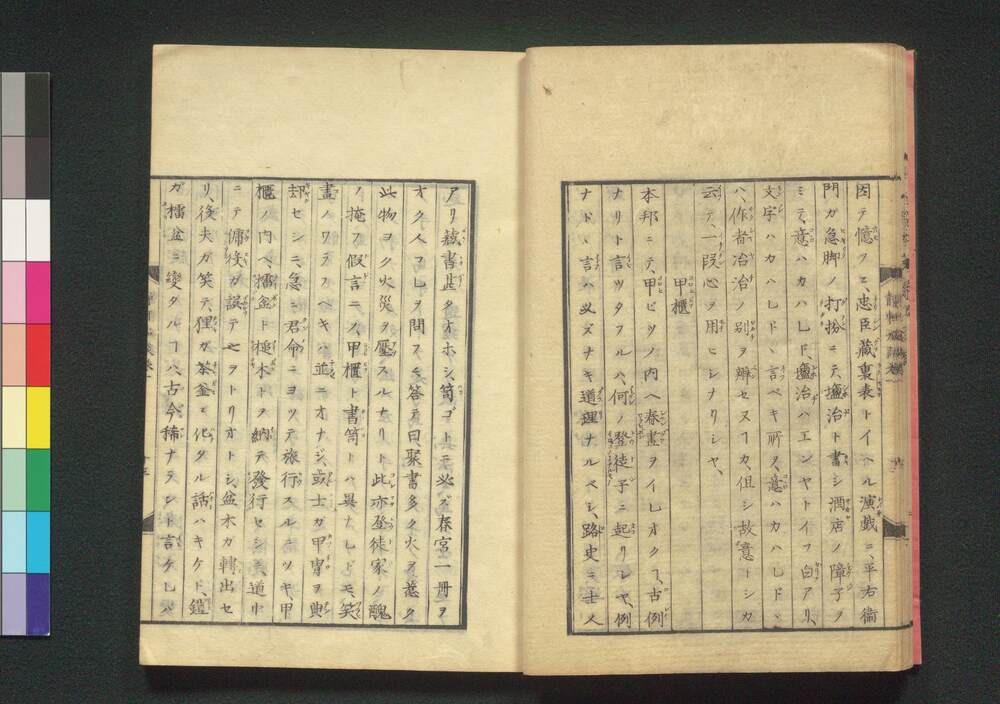 因テ憶フニ、忠臣藏裏表トイヘル演戯ニ、平右衞
門ガ急脚ノ打扮ニテ、塩治ト書シ酒店ノ障子ヲ
ミテ、意ハカハレド、塩治ハエンヤトイフ白アリ、
文字ハカハレド、言ベキ所ヲ、意ハカハレドヽ
ハ、作者冶治ノ別ヲ辨セヌヿカ、但シ故意トシカ
云テ、一段心ヲ用ヒシナリシヤ、
甲櫃
本邦ニテ、甲ビツノ内ヘ春畫ヲイレオクヿ、古例
ナリト言ツタフルハ、何ノ登徒子ニ起リシヤ、例
ナドヽ言ハ必ズナキ道理ナルベシ、路史ニ士人
アリ藏書甚タオホシ、筒ゴトニ必ズ春宮一冊ヲ
オク、人コレヲ問フニ、答テ曰聚書多ク火ヲ惹ク
此物ヨク火災ヲ厭スルナリト、此亦登徒家ノ醜
ノ掩フ假言ニノ、甲櫃ト書筒トハ異ナレドモ、笑
畫ノワラフベキハ並ニオナジ、或士ガ甲冑ヲ典
却セシニ、急ニ君命ニヨツテ旅行スルニツキ、甲
櫃ノ内ヘ擂盆ト槌木トヲ納テ發行セシニ、道中
ニテ傭役ガ誤テセヲトリオトシ、盆木カ轉出セ
リ、役夫ガ笑テ、狸ガ茶釜ニ化タル話ハキケド、鎧
ガ擂盆ニ變タルヿハ、古今稀ナラント言ケレバ